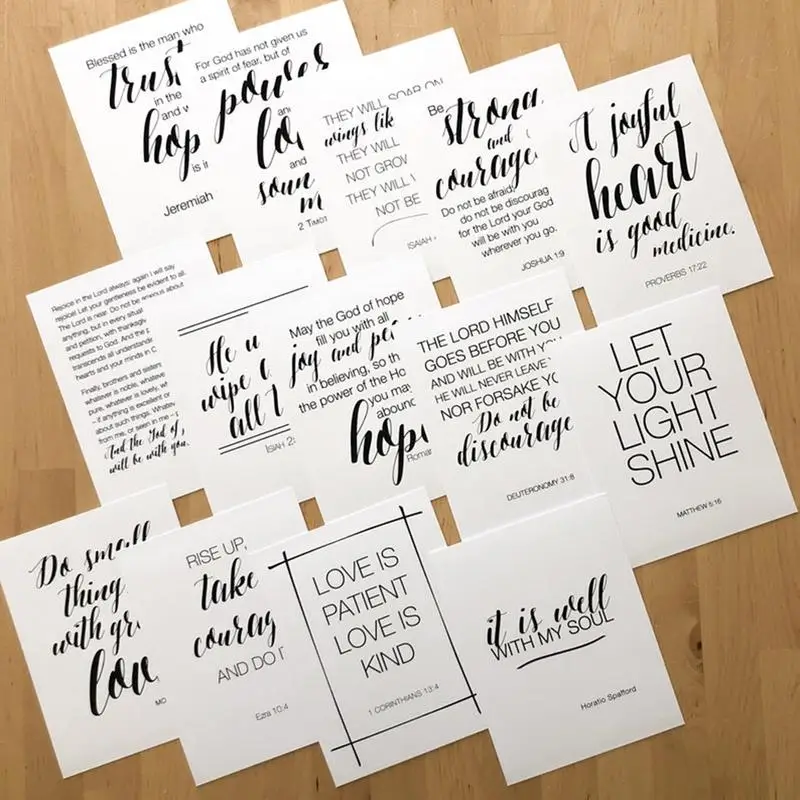 Blessed is the man who
trust
in the
and
hop
is in
Jeremiah
For God has not given us
a spirit of fear, but of
power
and
lo
and
soun
m
2 TIMOT
THEY WILL SOAR ON
wings lik
THEY WILL
NOT GROW
THEY WILL
NOT BE
ISAIAH
Be
strong
and
courage
Do not be afraid;
do not be discourag
for the Lord your God
will be with you
wherever you go.
JOSHUA 1:9
A joyful
heart
is good
medicine.
PROVERBS 17:22
Rejoice in the Lord always: again I will say
rejoice! Let your gentleness be evident to all.
The Lord is near. Do not be anxious about
anything, but in every situat
and petition, with thanksg
requests to God. And the p
transcends all understandi
hearts and your minds in C
Finally, brothers and sisters
whatever is noble, whateve
pure, whatever is lovely, wh
– if anything is excellent or
about such things. Whateve
from me, or seen in me – p
And the God of
will be with you.
He w
wipe
all t
ISIAH 25
May the God of hope
fill you with all
joy and pea
in believing, so th
the power of the Ho
you may
abound
hop
Roman
THE LORD HIMSELF
GOES BEFORE YOU
AND WILL BE WITH YO
HE WILL NEVER LEAVE
NOR FORSAKE YO
Do not be
discourage
DEUTERONOMY 31:8
LET
YOUR
LIGHT
SHINE
MATTHEW 5:16
Do small
thing
with gr
lov
MO
RISE UP,
take
courag
AND DO I
Ezra 10:4
LOVE IS
PATIENT
LOVE IS
KIND
1 CORINTHIANS 13:4
it is well
WITH MY SOUL
Horatio Spafford